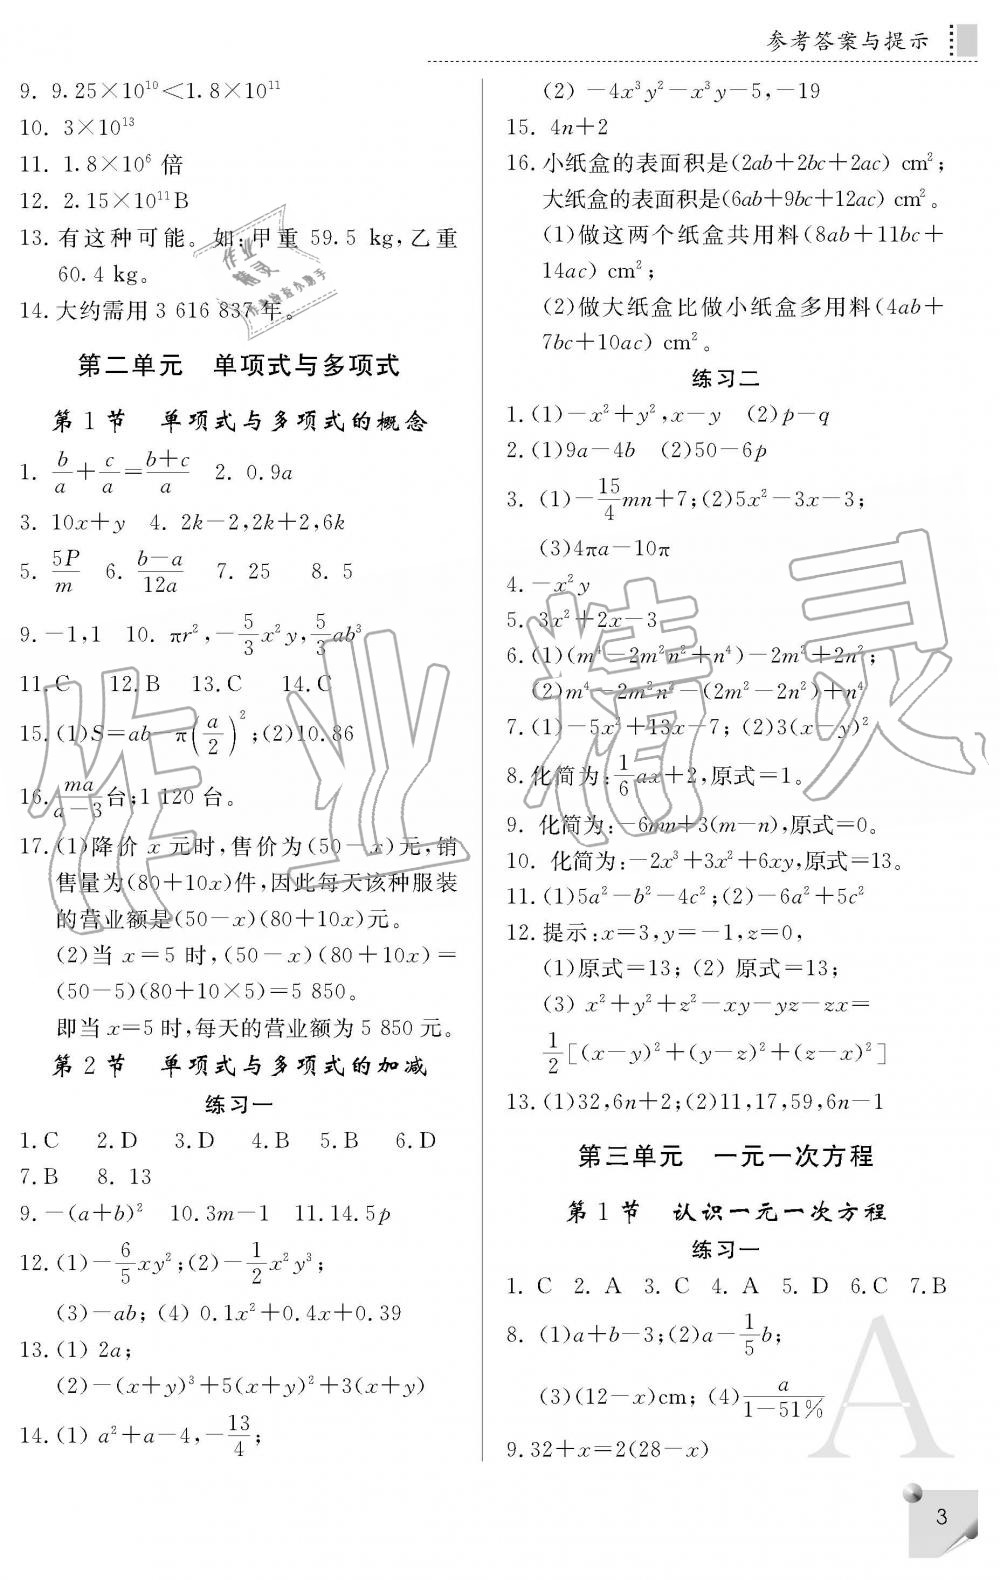 参考答案与提示
9. 9.25×10¹⁰＜1.8×10¹¹
10. 3×10¹³
11. 1.8×10⁶ 倍
12. 2.15×10¹¹B
13. 有这种可能。如:甲重 59.5 kg,乙重
60.4 kg。
14. 大约需用 3 616 837 年。
第二单元 单项式与多项式
第 1 节 单项式与多项式的概念
1. b/a+c/a=(b+c)/a 2. 0.9a
3. 10x+y 4. 2k-2,2k+2,6k
5. 5P/m 6. (b-a)/12a 7. 25 8. 5
9. -1,1 10. πr²,-5/3x²y,5/3ab³
11. C 12. B 13. C 14. C
15. (1)S=ab-π(a/2)²;(2)10.86
16. ma/(a-3)台;1 120 台。
17. (1)降价 x 元时,售价为(50-x)元,销
售量为(80+10x)件,因此每天该种服装
的营业额是(50-x)(80+10x)元。
(2)当 x=5 时,(50-x)(80+10x)=
(50-5)(80+10×5)=5 850。
即当 x=5 时,每天的营业额为 5 850 元。
第 2 节 单项式与多项式的加减
练习一
1. C 2. D 3. D 4. B 5. B 6. D
7. B 8. 13
9. -(a+b)² 10. 3m-1 11. 14.5p
12. (1)-6/5xy²;(2)-1/2x²y³;
(3)-ab; (4) 0.1x²+0.4x+0.39
13. (1) 2a;
(2)-(x+y)³+5(x+y)²+3(x+y)
14. (1) a²+a-4,-13/4;
(2) -4x³y²-x³y-5,-19
15. 4n+2
16. 小纸盒的表面积是(2ab+2bc+2ac) cm²;
大纸盒的表面积是(6ab+9bc+12ac) cm²。
(1)做这两个纸盒共用料(8ab+11bc+
14ac) cm²;
(2)做大纸盒比做小纸盒多用料(4ab+
7bc+10ac) cm²。
练习二
1. (1)-x²+y²,x-y (2)p-q
2. (1)9a-4b (2)50-6p
3. (1)-15/4mn+7;(2)5x²-3x-3;
(3)4πa-10π
4. -x²y
5. 3x²+2x-3
6. (1)(m⁴-2m²n²+n⁴)-2m²+2n²;
(2)m⁴-2m²n²-(2m²-2n²)+n⁴
7. (1)-5x²+13x-7; (2)3(x-y)²
8. 化简为:1/6ax+2,原式=1。
9. 化简为:-6mn+3(m-n),原式=0。
10. 化简为:-2x³+3x²+6xy,原式=13。
11. (1)5a²-b²-4c²;(2)-6a²+5c²
12. 提示:x=3,y=-1,z=0,
(1)原式=13; (2) 原式=13;
(3) x²+y²+z²-xy-yz-zx=
1/2[(x-y)²+(y-z)²+(z-x)²]
13. (1)32,6n+2;(2)11,17,59,6n-1
第三单元 一元一次方程
第 1 节 认识一元一次方程
练习一
1. C 2. A 3. C 4. A 5. D 6. C 7. B
8. (1)a+b-3;(2)a-1/5b;
(3)(12-x)cm; (4)a/(1-51%)
9. 32+x=2(28-x)
A
3
作业精灵